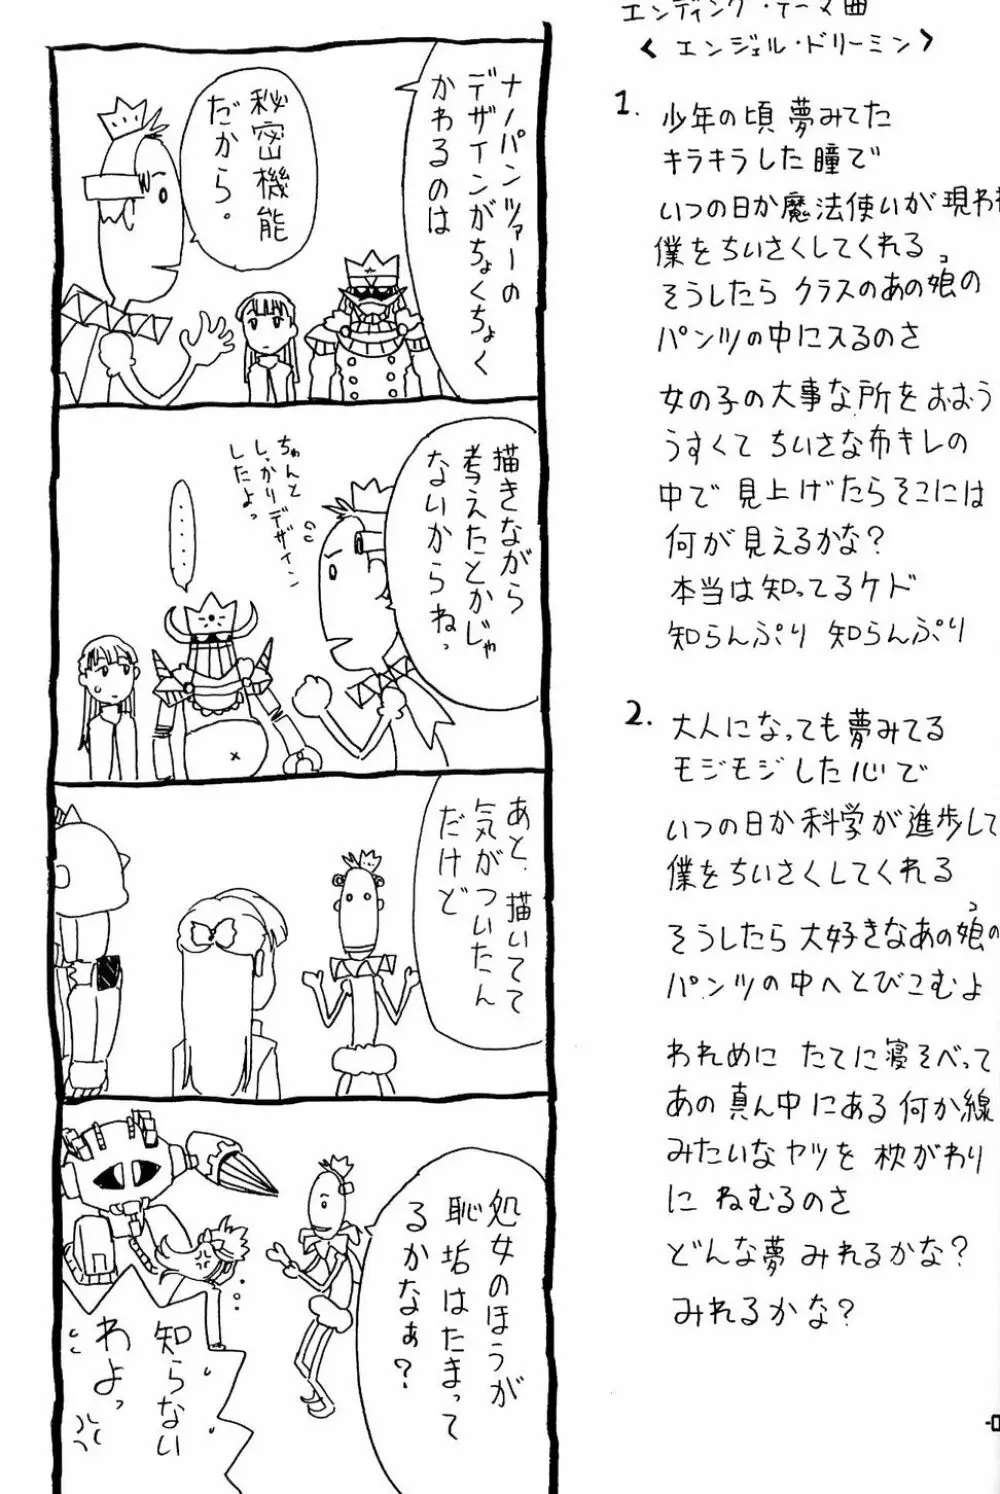 ナノパンツァーの
デザインがちょくちょく
かわるのは
秘密機能
だから。
描きながら
考えたとかじゃ
ないからねっ
ちゃんと
しっかりデザイン
したよっ
・・・・・
あと、描いてて
気がついたん
だけど
処女のほうが
恥垢はたまって
るかなぁ?
知らない
わよっ
エンディング・テーマ曲
<エンジェル・ドリーミン>
1. 少年の頃 夢みてた
キラキラした瞳で
いつの日か魔法使いが現われ
僕をちいさくしてくれる
そうしたら クラスのあの娘の
パンツの中に入るのさ
女の子の大事な所をおおう
うすくて ちいさな布キレの
中で 見上げたらそこには
何が見えるかな?
本当は知ってるケド
知らんぷり 知らんぷり
2. 大人になっても夢みてる
モジモジした心で
いつの日か科学が進歩して
僕をちいさくしてくれる
そうしたら 大好きなあの娘の
パンツの中へとびこむよ
われめに たてに寝そべって
あの真ん中にある何か線
みたいなヤツを 枕がわり
に ねむるのさ
どんな夢 みれるかな?
みれるかな?